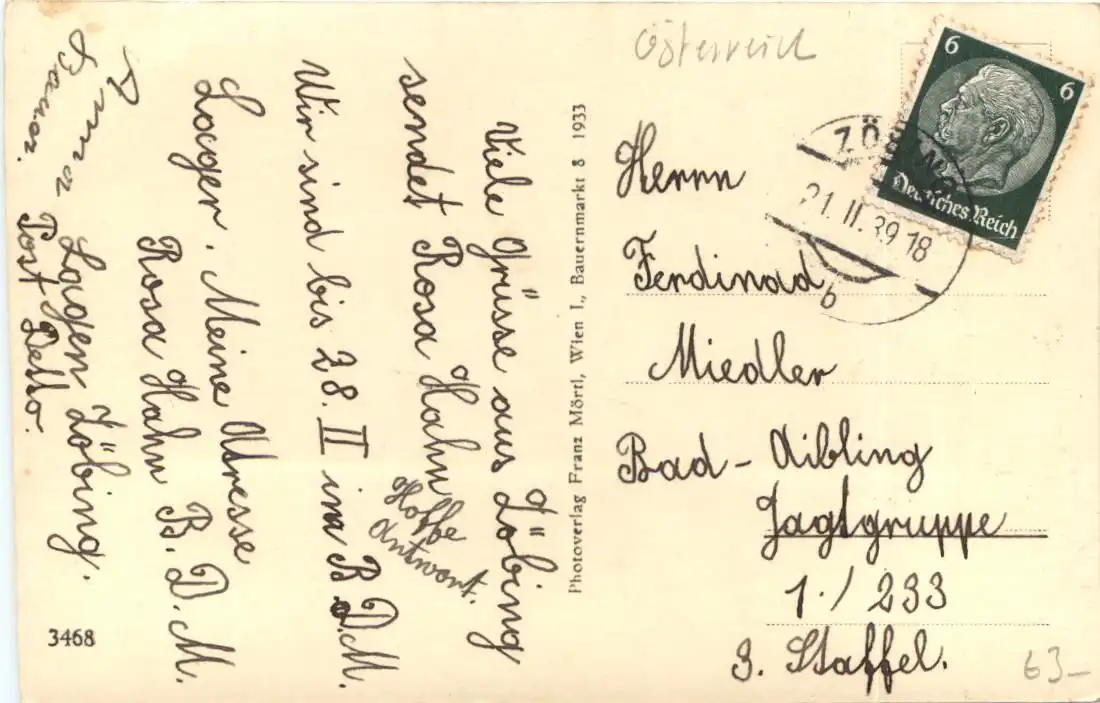 Österreich
6 6
Deutsches Reich
ZÖBING
21. II. 39 18
b
Herrn
Ferdinad
Miedler
Bad-Aibling
Jagtgruppe
1./233
3. Staffel.
63-
Photoverlag Franz Mörtl, Wien I., Bauernmarkt 8 1933
Viele Grüsse aus Zöbing
sendet Rosa Hahn
Hoffe
Antwort.
Wir sind bis 28. II im B.D.M.
Lager. Meine Adresse
Rosa Hahn B.D.M.
Lager Zöbing.
Post
3468